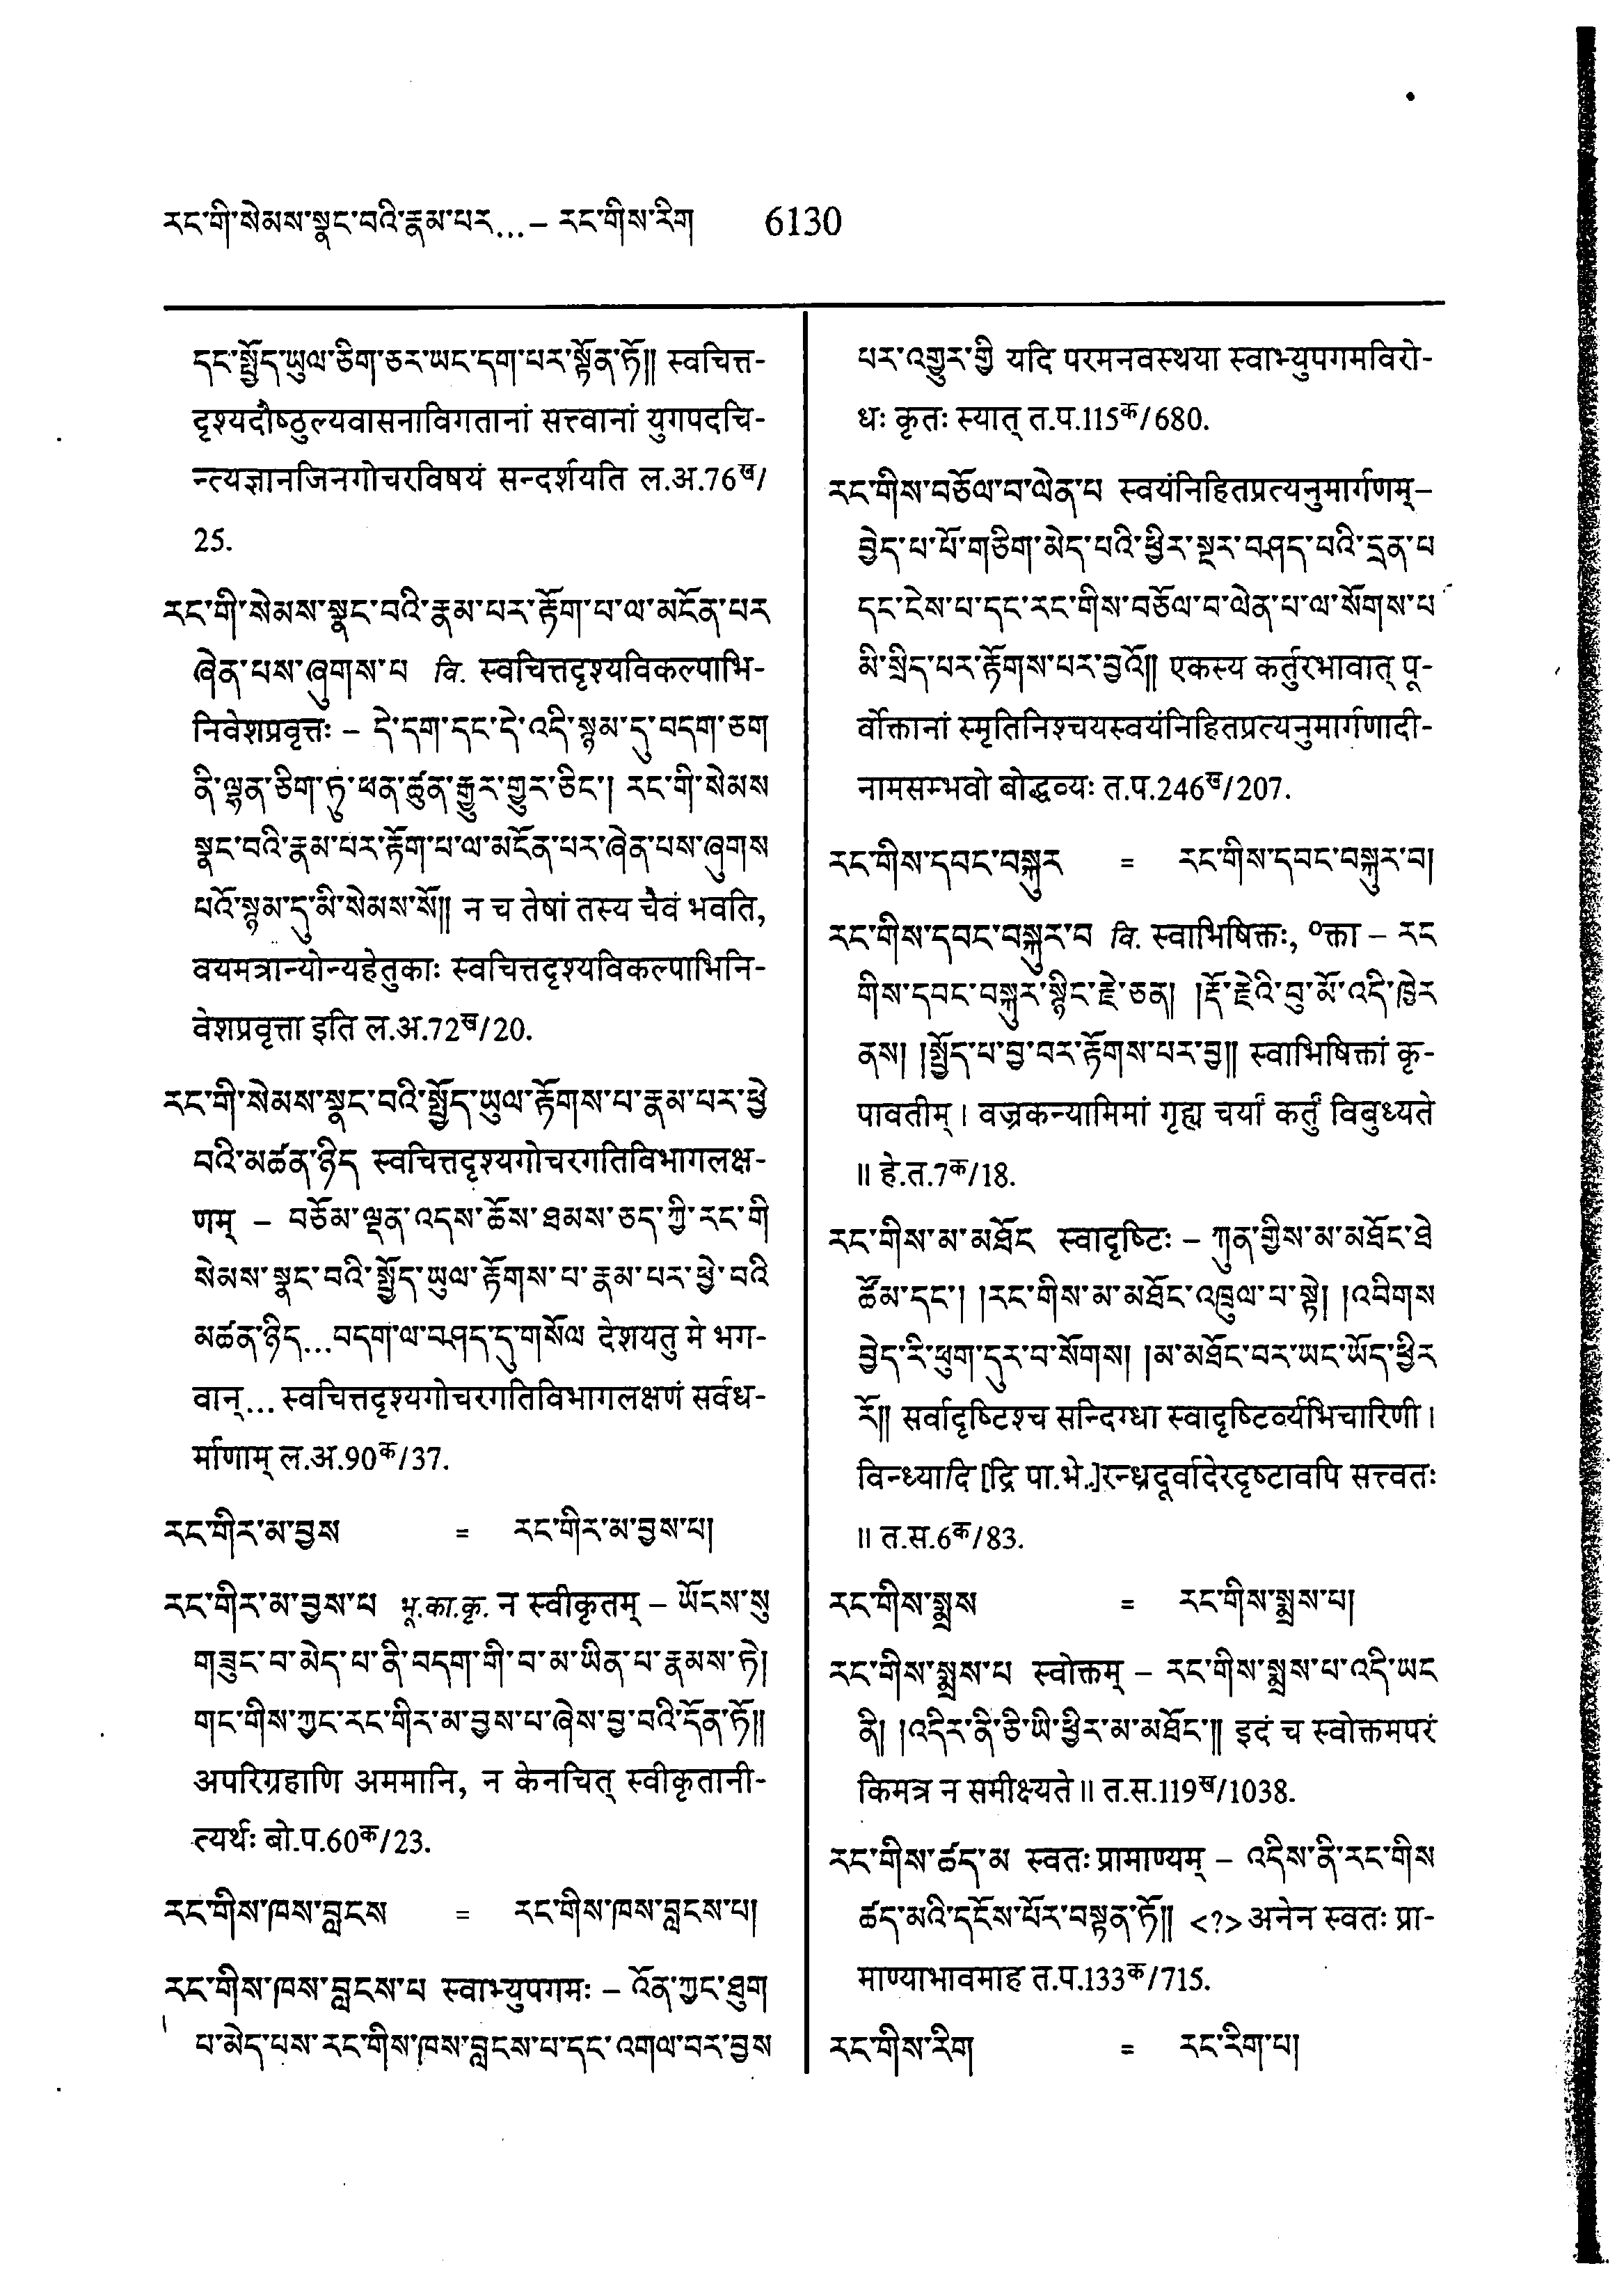 རང་གི་སེམས་སྣང་བའི་རྣམ་པར...– རང་གིས་རིག 6130
དང་སྤྱོད་ཡུལ་ཅིག་ཅར་ཡང་དག་པར་སྟོན་ཏོ།། स्वचित्त-
दृश्यदौष्ठुल्यवासनाविगतानां सत्त्वानां युगपदचि-
न्त्यज्ञानजिनगोचरविषयं सन्दर्शयति ल.अ.76ख/
25.
རང་གི་སེམས་སྣང་བའི་རྣམ་པར་རྟོག་པ་ལ་མངོན་པར
ཞེན་པས་ཞུགས་པ वि. स्वचित्तदृश्यविकल्पाभि-
निवेशप्रवृत्तः – དེ་དག་དང་དེ་འདི་སྙམ་དུ་བདག་ཅག
ནི་ལྷན་ཅིག་ཏུ་ཕན་ཚུན་རྒྱུར་གྱུར་ཅིང་། རང་གི་སེམས
སྣང་བའི་རྣམ་པར་རྟོག་པ་ལ་མངོན་པར་ཞེན་པས་ཞུགས
པའོ་སྙམ་དུ་མི་སེམས་སོ།། न च तेषां तस्य चैवं भवति,
वयमत्रान्योन्यहेतुकाः स्वचित्तदृश्यविकल्पाभिनि-
वेशप्रवृत्ता इति ल.अ.72ख/20.
རང་གི་སེམས་སྣང་བའི་སྤྱོད་ཡུལ་རྟོགས་པ་རྣམ་པར་ཕྱེ
བའི་མཚན་ཉིད स्वचित्तदृश्यगोचरगतिविभागलक्ष-
णम् – བཅོམ་ལྡན་འདས་ཆོས་ཐམས་ཅད་ཀྱི་རང་གི
སེམས་སྣང་བའི་སྤྱོད་ཡུལ་རྟོགས་པ་རྣམ་པར་ཕྱེ་བའི
མཚན་ཉིད...བདག་ལ་བཤད་དུ་གསོལ देशयतु मे भग-
वान्... स्वचित्तदृश्यगोचरगतिविभागलक्षणं सर्वध-
र्माणाम् ल.अ.90क/37.
རང་གིར་མ་བྱས = རང་གིར་མ་བྱས་པ།
རང་གིར་མ་བྱས་པ भू.का.कृ. न स्वीकृतम् – ཡོངས་སུ
གཟུང་བ་མེད་པ་ནི་བདག་གི་བ་མ་ཡིན་པ་རྣམས་ཏེ།
གང་གིས་ཀྱང་རང་གིར་མ་བྱས་པ་ཞེས་བྱ་བའི་དོན་ཏོ།།
अपरिग्रहाणि अममानि, न केनचित् स्वीकृतानी-
त्यर्थः बो.प.60क/23.
རང་གིས་ཁས་བླངས = རང་གིས་ཁས་བླངས་པ།
རང་གིས་ཁས་བླངས་པ स्वाभ्युपगमः – འོན་ཀྱང་ཐུག
པ་མེད་པས་རང་གིས་ཁས་བླངས་པ་དང་འགལ་བར་བྱས
པར་འགྱུར་གྱི यदि परमनवस्थया स्वाभ्युपगमविरो-
धः कृतः स्यात् त.प.115क/680.
རང་གིས་བཅོལ་བ་ལེན་པ स्वयंनिहितप्रत्यनुमार्गणम्–
བྱེད་པ་པོ་གཅིག་མེད་པའི་ཕྱིར་སྔར་བཤད་པའི་དྲན་པ
དང་ངེས་པ་དང་རང་གིས་བཅོལ་བ་ལེན་པ་ལ་སོགས་པ
མི་སྲིད་པར་རྟོགས་པར་བྱའོ།། एकस्य कर्तुरभावात् पू-
र्वोक्तानां स्मृतिनिश्चयस्वयंनिहितप्रत्यनुमार्गणादी-
नामसम्भवो बोद्धव्यः त.प.246ख/207.
རང་གིས་དབང་བསྐུར = རང་གིས་དབང་བསྐུར་བ།
རང་གིས་དབང་བསྐུར་བ वि. स्वाभिषिक्तः, ०क्ता – རང
གིས་དབང་བསྐུར་སྙིང་རྗེ་ཅན། །རྡོ་རྗེའི་བུ་མོ་འདི་ཁྱེར
ནས། །སྤྱོད་པ་བྱ་བར་རྟོགས་པར་བྱ།། स्वाभिषिक्तां कृ-
पावतीम्। वज्रकन्यामिमां गृह्य चर्यां कर्तुं विबुध्यते
॥ हे.त.7क/18.
རང་གིས་མ་མཐོང स्वादृष्टिः – ཀུན་གྱིས་མ་མཐོང་ཐེ
ཚོམ་དང་། །རང་གིས་མ་མཐོང་འཁྲུལ་པ་སྟེ། །འབིགས
བྱེད་རི་ཕུག་དུར་བ་སོགས། །མ་མཐོང་བར་ཡང་ཡོད་ཕྱིར
རོ།། सर्वादृष्टिश्च सन्दिग्धा स्वादृष्टिर्व्यभिचारिणी।
विन्ध्यादि [द्रि पा.भे.]रन्ध्रदूर्वादेरदृष्टावपि सत्त्वतः
॥ त.स.6क/83.
རང་གིས་སྨྲས = རང་གིས་སྨྲས་པ།
རང་གིས་སྨྲས་པ स्वोक्तम् – རང་གིས་སྨྲས་པ་འདི་ཡང
ནི། །འདིར་ནི་ཅི་ཡི་ཕྱིར་མ་མཐོང་།། इदं च स्वोक्तमपरं
किमत्र न समीक्ष्यते॥ त.स.119ख/1038.
རང་གིས་ཚད་མ स्वतः प्रामाण्यम् – འདིས་ནི་རང་གིས
ཚད་མའི་དངོས་པོར་བསྟན་ཏོ།། <?> अनेन स्वतः प्रा-
माण्याभावमाह त.प.133क/715.
རང་གིས་རིག = རང་རིག་པ།